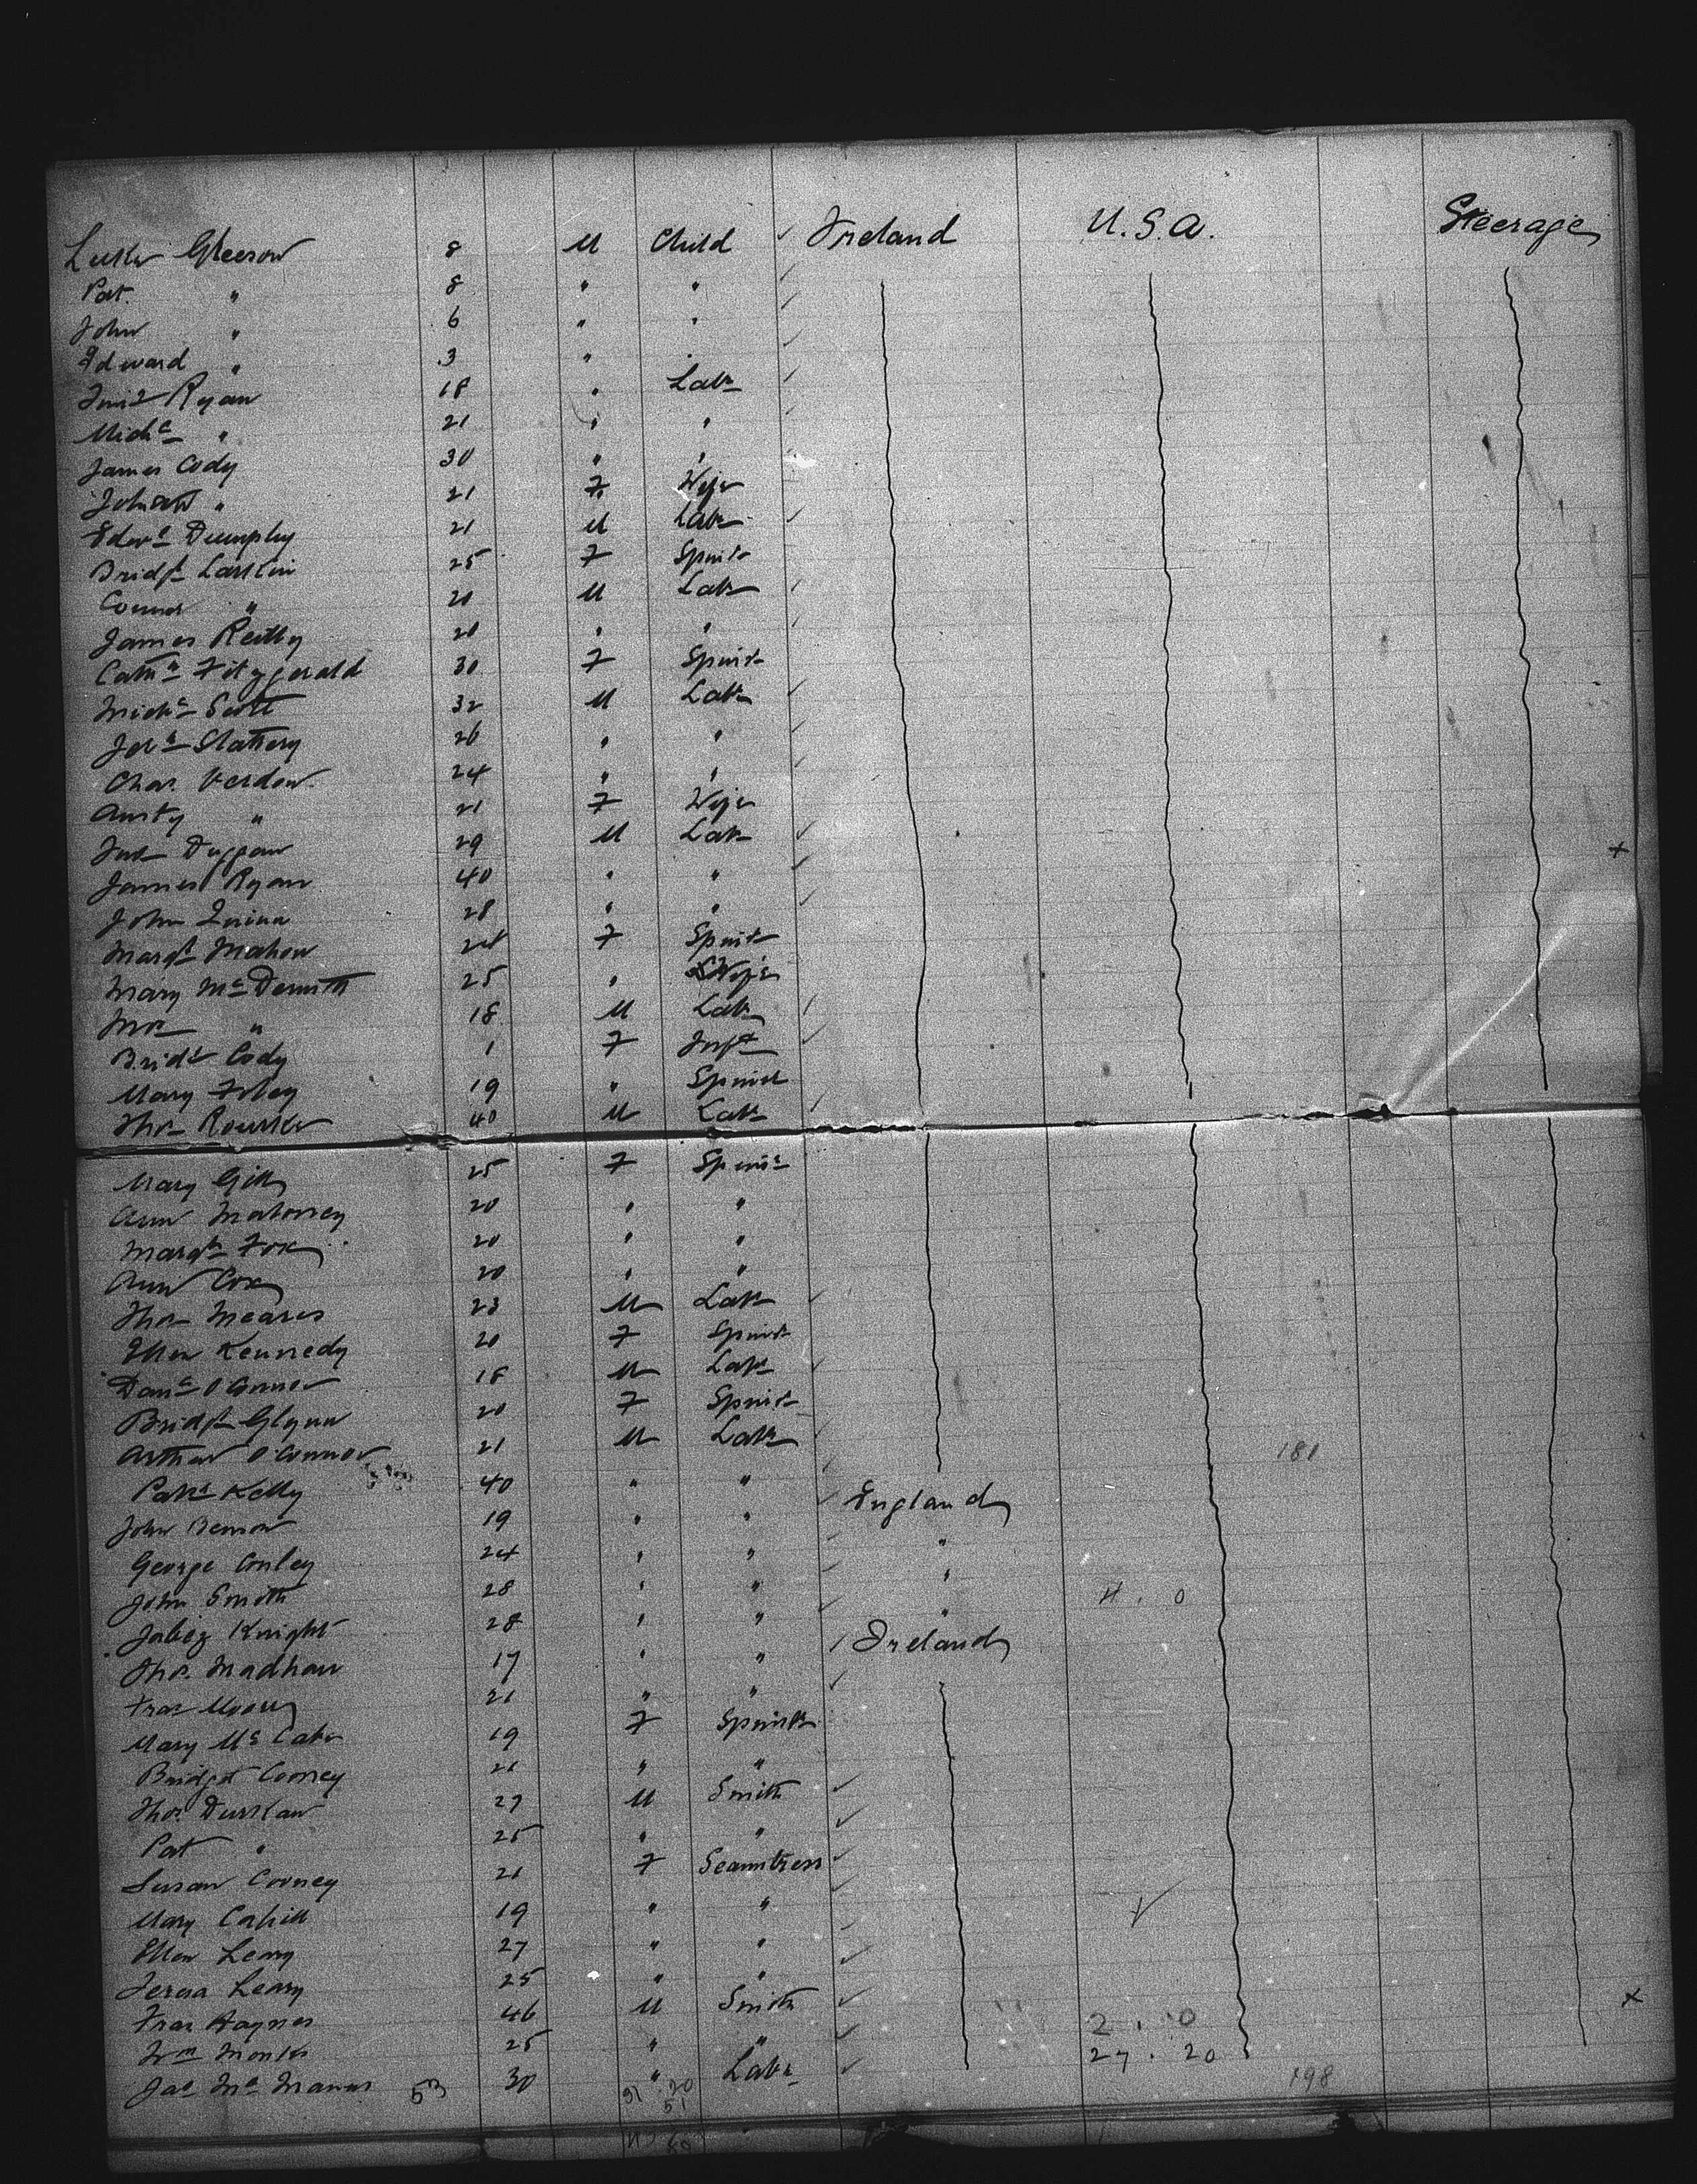 Luke Gleeson 8 M Child Ireland U.S.A. Steerage
Pat. " 8 " "
John " 6 " "
Edward " 3 " "
Ryan 18 " Labr
Michl " 21 " "
James Cody 30 " "
Johan " 21 F Wife
Edwd Dumphy 21 M Labr
Bridgt Larkin 25 F Spinstr
Connor " 20 M Labr
James Reilly 20 " "
Cathn Fitzgerald 30 F Spinstr
Michl Scott 32 M Labr
Slattery 26 " "
Chas. Verdon 24 " "
Ansty " 21 F Wife
Duggan 29 M Labr
James Ryan 40 " "
John Quinn 28 " "
Margt Mahon 24 F Spinstr
Mary McDermtt 25 " Wife
" 18 M Labr
Bridt Cody 1 F Inft
Mary Foley 19 " Spinst
Thos Rourke 40 M Labr
Mary Gill 25 F Spinst
Ann Mahoney 20 " "
Margt Fox 20 " "
Ann Cox 20 " "
Thos Meares 23 M Labr
Ellen Kennedy 20 F Spinstr
Danl O'Connor 18 M Labr
Bridgt Glynn 20 F Spinstr
Arthur O'Connor 21 M Labr 181
Patk Kelly 40 " "
John Benson 19 " " England
George Conley 24 " " "
John Smith 28 " " "
Jabez Knight 28 " " "
Thos. Madhan 17 " " Ireland
Fras 21 " "
Mary McCabe 19 F Spinstr
Bridget Cooney 21 " "
Thos. Durkan 27 M Smith
Pat " 25 " "
Susan Cooney 21 F Seamtress
Mary Cahill 19 " "
Ellen Leary 27 " "
Teresa Leary 25 " "
Fras Haynes 46 M Smith 2 . 0
Wm Monks 25 " " 27 . 20
Jas McManus 53 30 " Labr 198